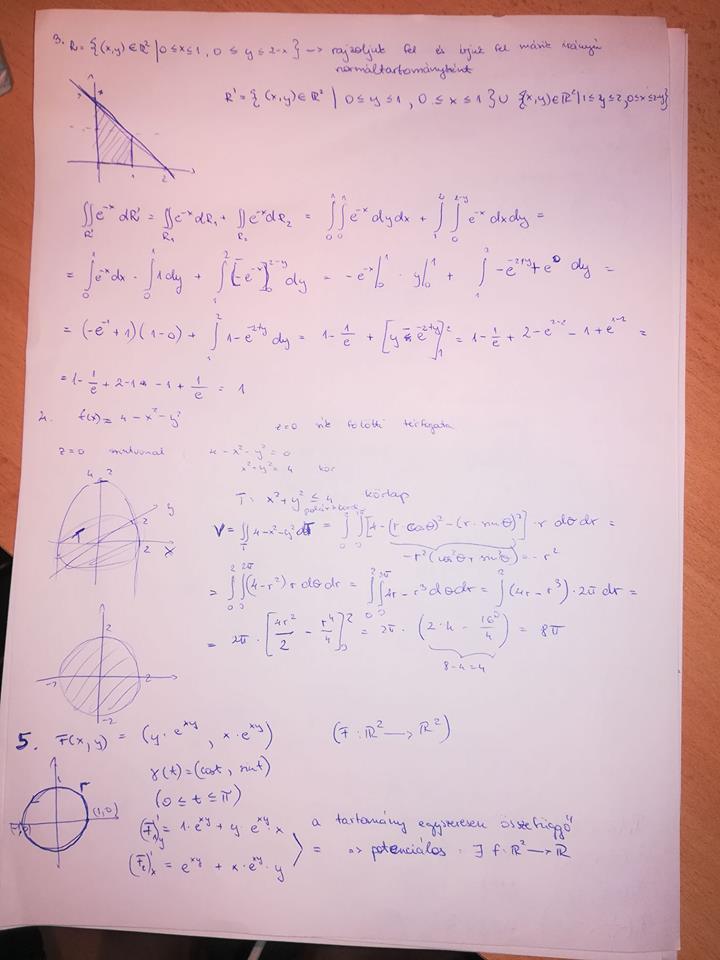 3. R = {(x,y) ∈ ℝ² | 0 ≤ x ≤ 1, 0 ≤ y ≤ 2-x} → rajzoljuk fel és írjuk fel másik irányú
normáltartományként
R' = {(x,y) ∈ ℝ² | 0 ≤ y ≤ 1, 0 ≤ x ≤ 1} ∪ {(x,y) ∈ ℝ² | 1 ≤ y ≤ 2, 0 ≤ x ≤ 2-y}
1 2
∬_{R'} e^{-x} dR' = ∬_{R₁} e^{-x} dR₁ + ∬_{R₂} e^{-x} dR₂ = ∫₀¹∫₀¹ e^{-x} dy dx + ∫₁²∫₀^{2-y} e^{-x} dx dy =
= ∫₀¹ e^{-x} dx · ∫₀¹ 1 dy + ∫₁² [-e^{-x}]₀^{2-y} dy = -e^{-x}|₀¹ · y|₀¹ + ∫₁² -e^{-2+y} + e⁰ dy =
= (-e^{-1} + 1)(1-0) + ∫₁² 1 - e^{-2+y} dy = 1 - 1/e + [y - e^{-2+y}]₁² = 1 - 1/e + 2 - e^{2-2} - 1 + e^{1-2} =
= 1 - 1/e + 2 - 1 - 1 + 1/e = 1
4. f(x) = 4 - x² - y² z=0 sík fölötti térfogata
z=0 4 - x² - y² = 0
x² + y² = 4 kör
4 2 y 2 T 2 x
T: x² + y² ≤ 4 körlap
V = ∬_T 4 - x² - y² dT = ∫₀²∫₀^{2π} [4 - (r·cosθ)² - (r·sinθ)²] · r dθ dr =
-r²(cos²θ + sin²θ) = -r²
= ∫₀²∫₀^{2π} (4 - r²) r dθ dr = ∫₀²∫₀^{2π} 4r - r³ dθ dr = ∫₀² (4r - r³) · 2π dr =
= 2π · [4r²/2 - r⁴/4]₀² = 2π · (2·4 - 16/4) = 8π
8-4=4
2 -2 2 -2
5. F(x,y) = (y·e^{xy}, x·e^{xy}) (F: ℝ² → ℝ²)
γ(t) = (cos t, sin t)
(0 ≤ t ≤ π)
1 Γ (1,0) (-1,0)
(F₁)'_y = 1·e^{xy} + y·e^{xy}·x a tartomány egyszeresen összefüggő
(F₂)'_x = e^{xy} + x·e^{xy}·y = ⇒ potenciálos: ∃ f: ℝ² → ℝ